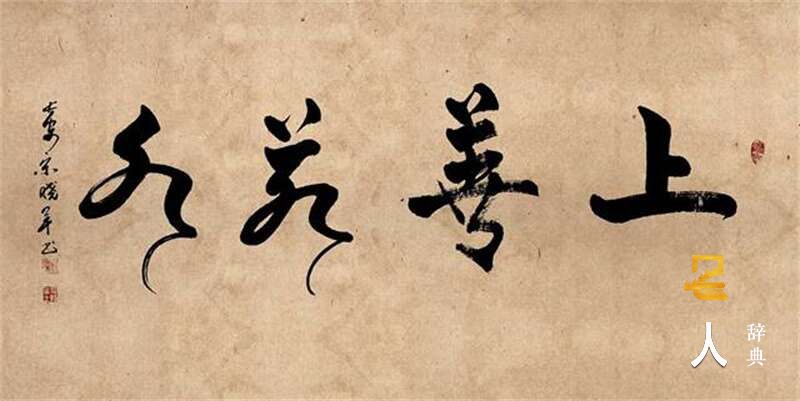 上善若水
名人辞典